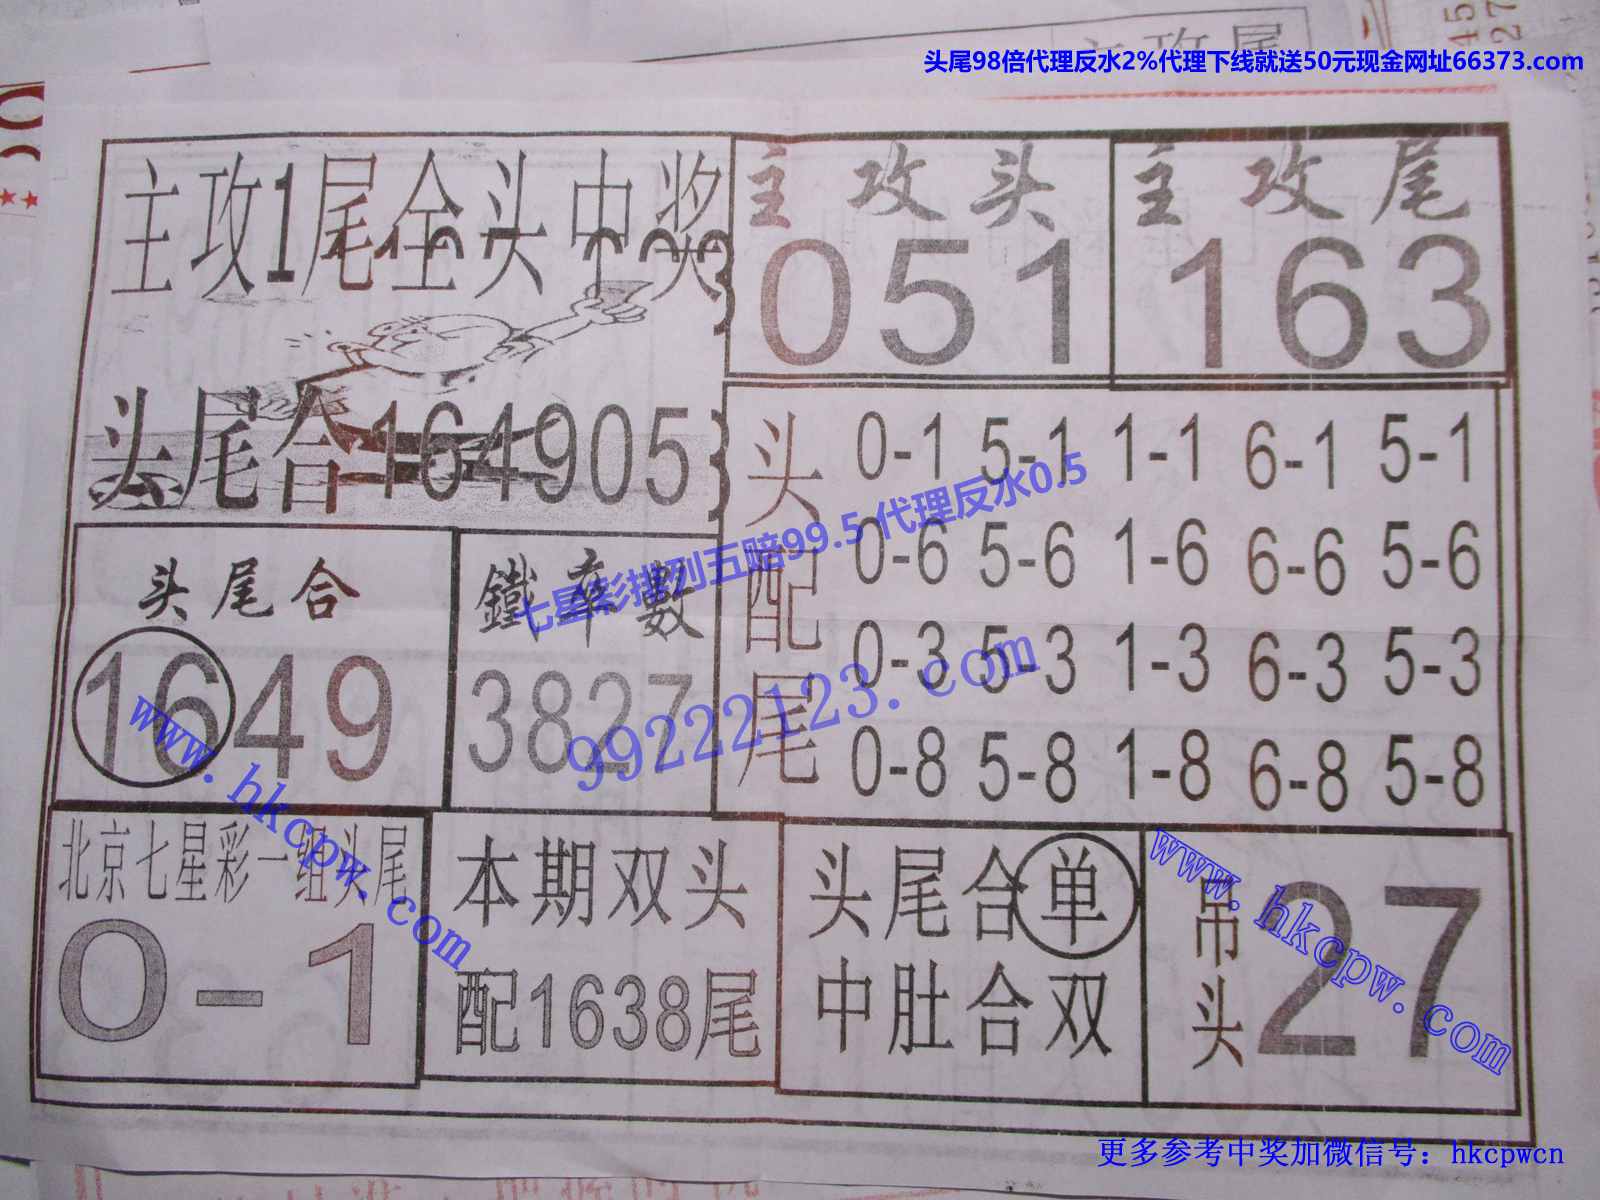 头尾98倍代理反水2%代理下线就送50元现金网址66373.com
主攻尾
主攻1尾全头中奖
头尾合164905
主攻头
051
主攻尾
163
头配尾
0-1 5-1 1-1 6-1 5-1
0-6 5-6 1-6 6-6 5-6
0-3 5-3 1-3 6-3 5-3
0-8 5-8 1-8 6-8 5-8
七星彩排列五赔99.5 代理反水0.5
99222123.com
头尾合
1649
鐵率數
3827
www.hkcpw.com
北京七星彩一组头尾
0-1
本期双头
配1638尾
头尾合单
中肚合双
吊头
27
www.hkcpw.com
更多参考中奖加微信号：hkcpwcn